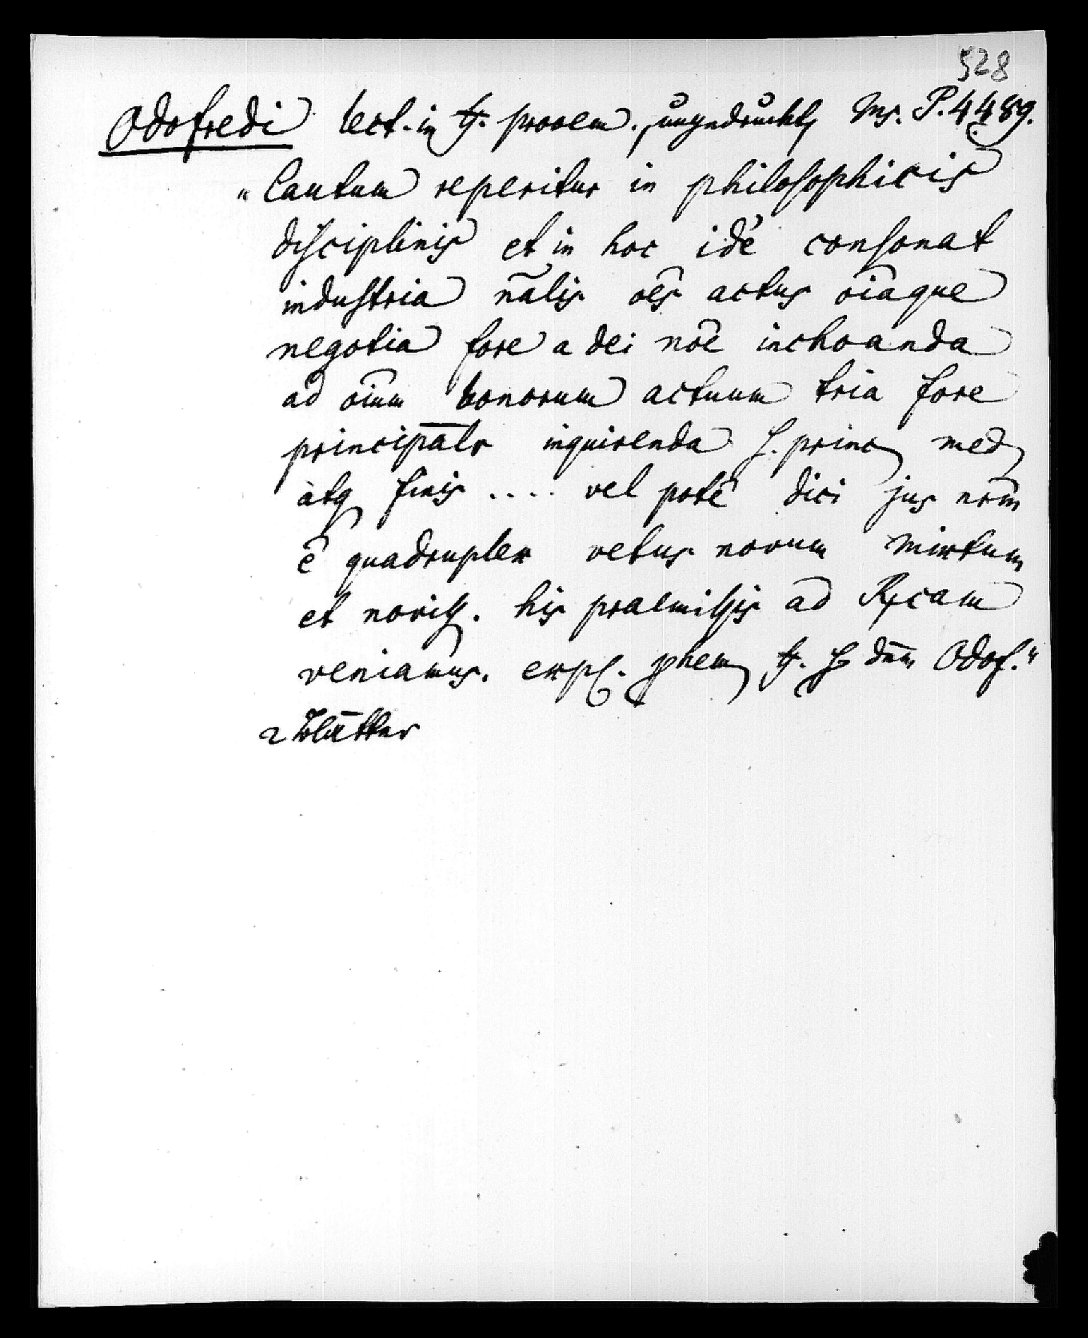 528
Odofredi lect. in ff. prooem. ungedruckt, Ms. P. 4489.
"Cautum reperitur in philosophicis
disciplinis et in hoc idē consonat
industria nālis oēs actus oīaque
negotia fore a dei noē inchoanda
ad oīum bonorum actuum tria fore
principālr inquirenda s. princ med
atq finis .... vel potē dici jus nrm̄
ē quadruplex vetus novum mixtum
et noviss. his praemissis ad Rxcam
veniamus. expl. phem ff. dnm̄ Odof."
2 Blätter